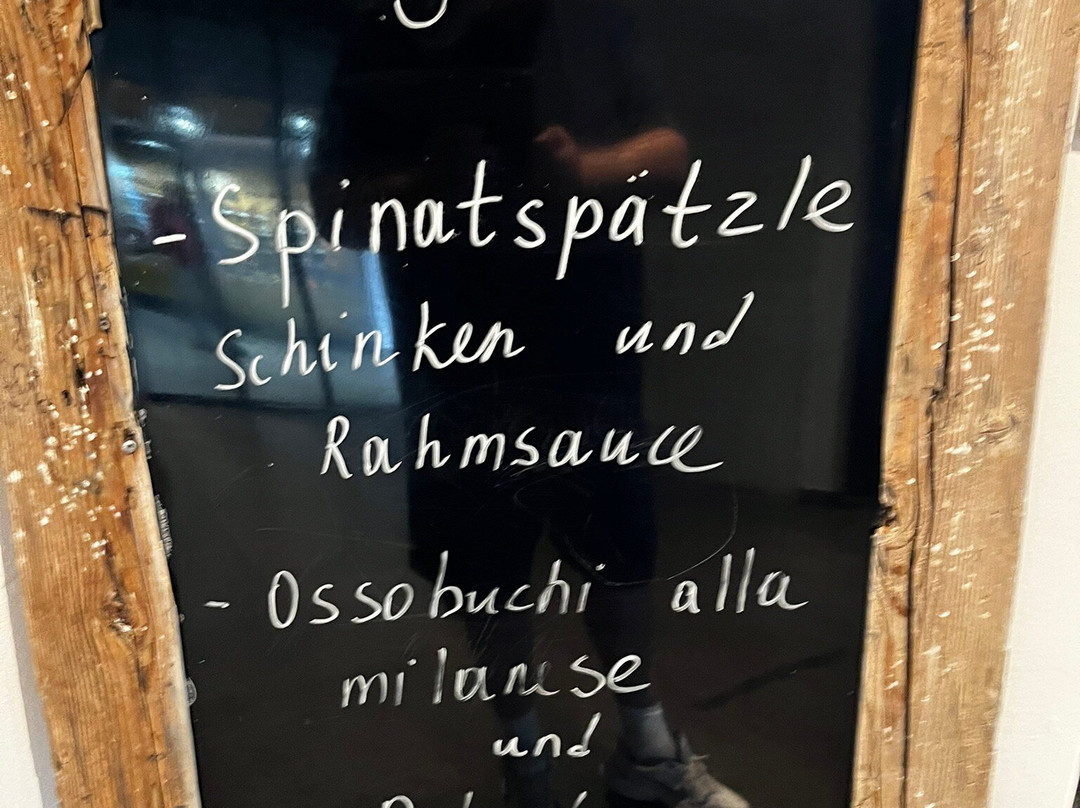 - Spinatspätzle
Schinken und
Rahmsauce
- Ossobuchi alla
milanese
und